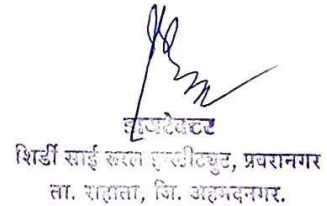 डायरेक्टर
शिर्डी साई रुरल इन्स्टीट्युट, प्रवरानगर
ता. राहाता, जि. अहमदनगर.